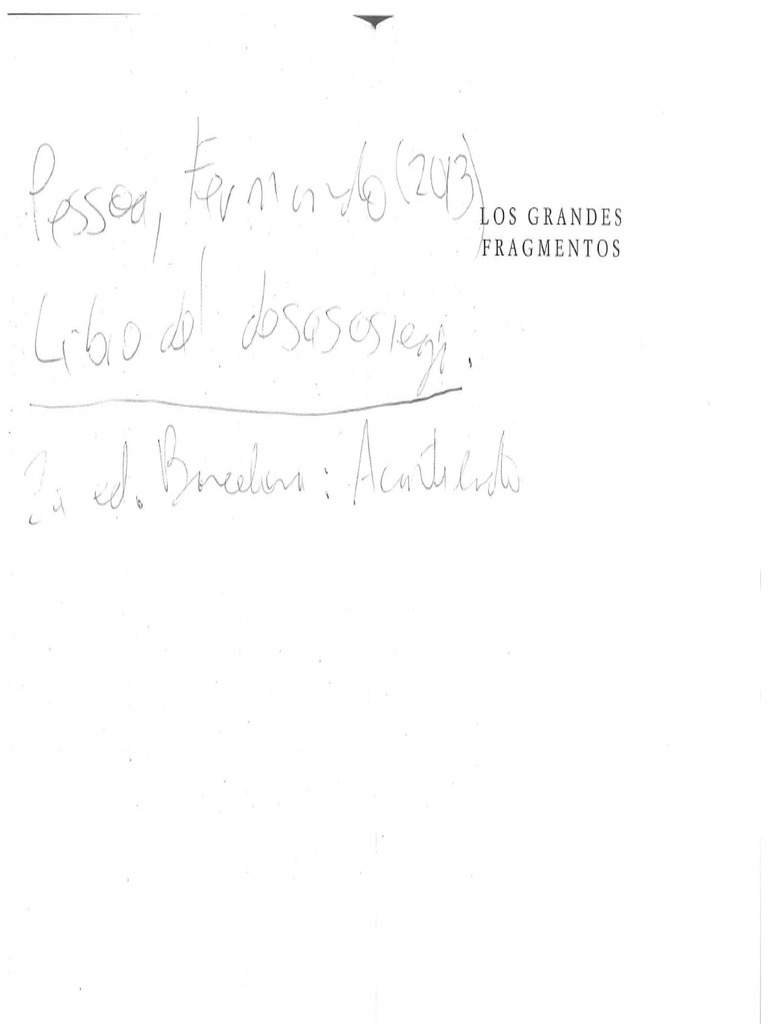 Pessoa, Fernando (2013)
LOS GRANDES
FRAGMENTOS
Libro del desasosiego.
2a ed. Barcelona: Acantilado